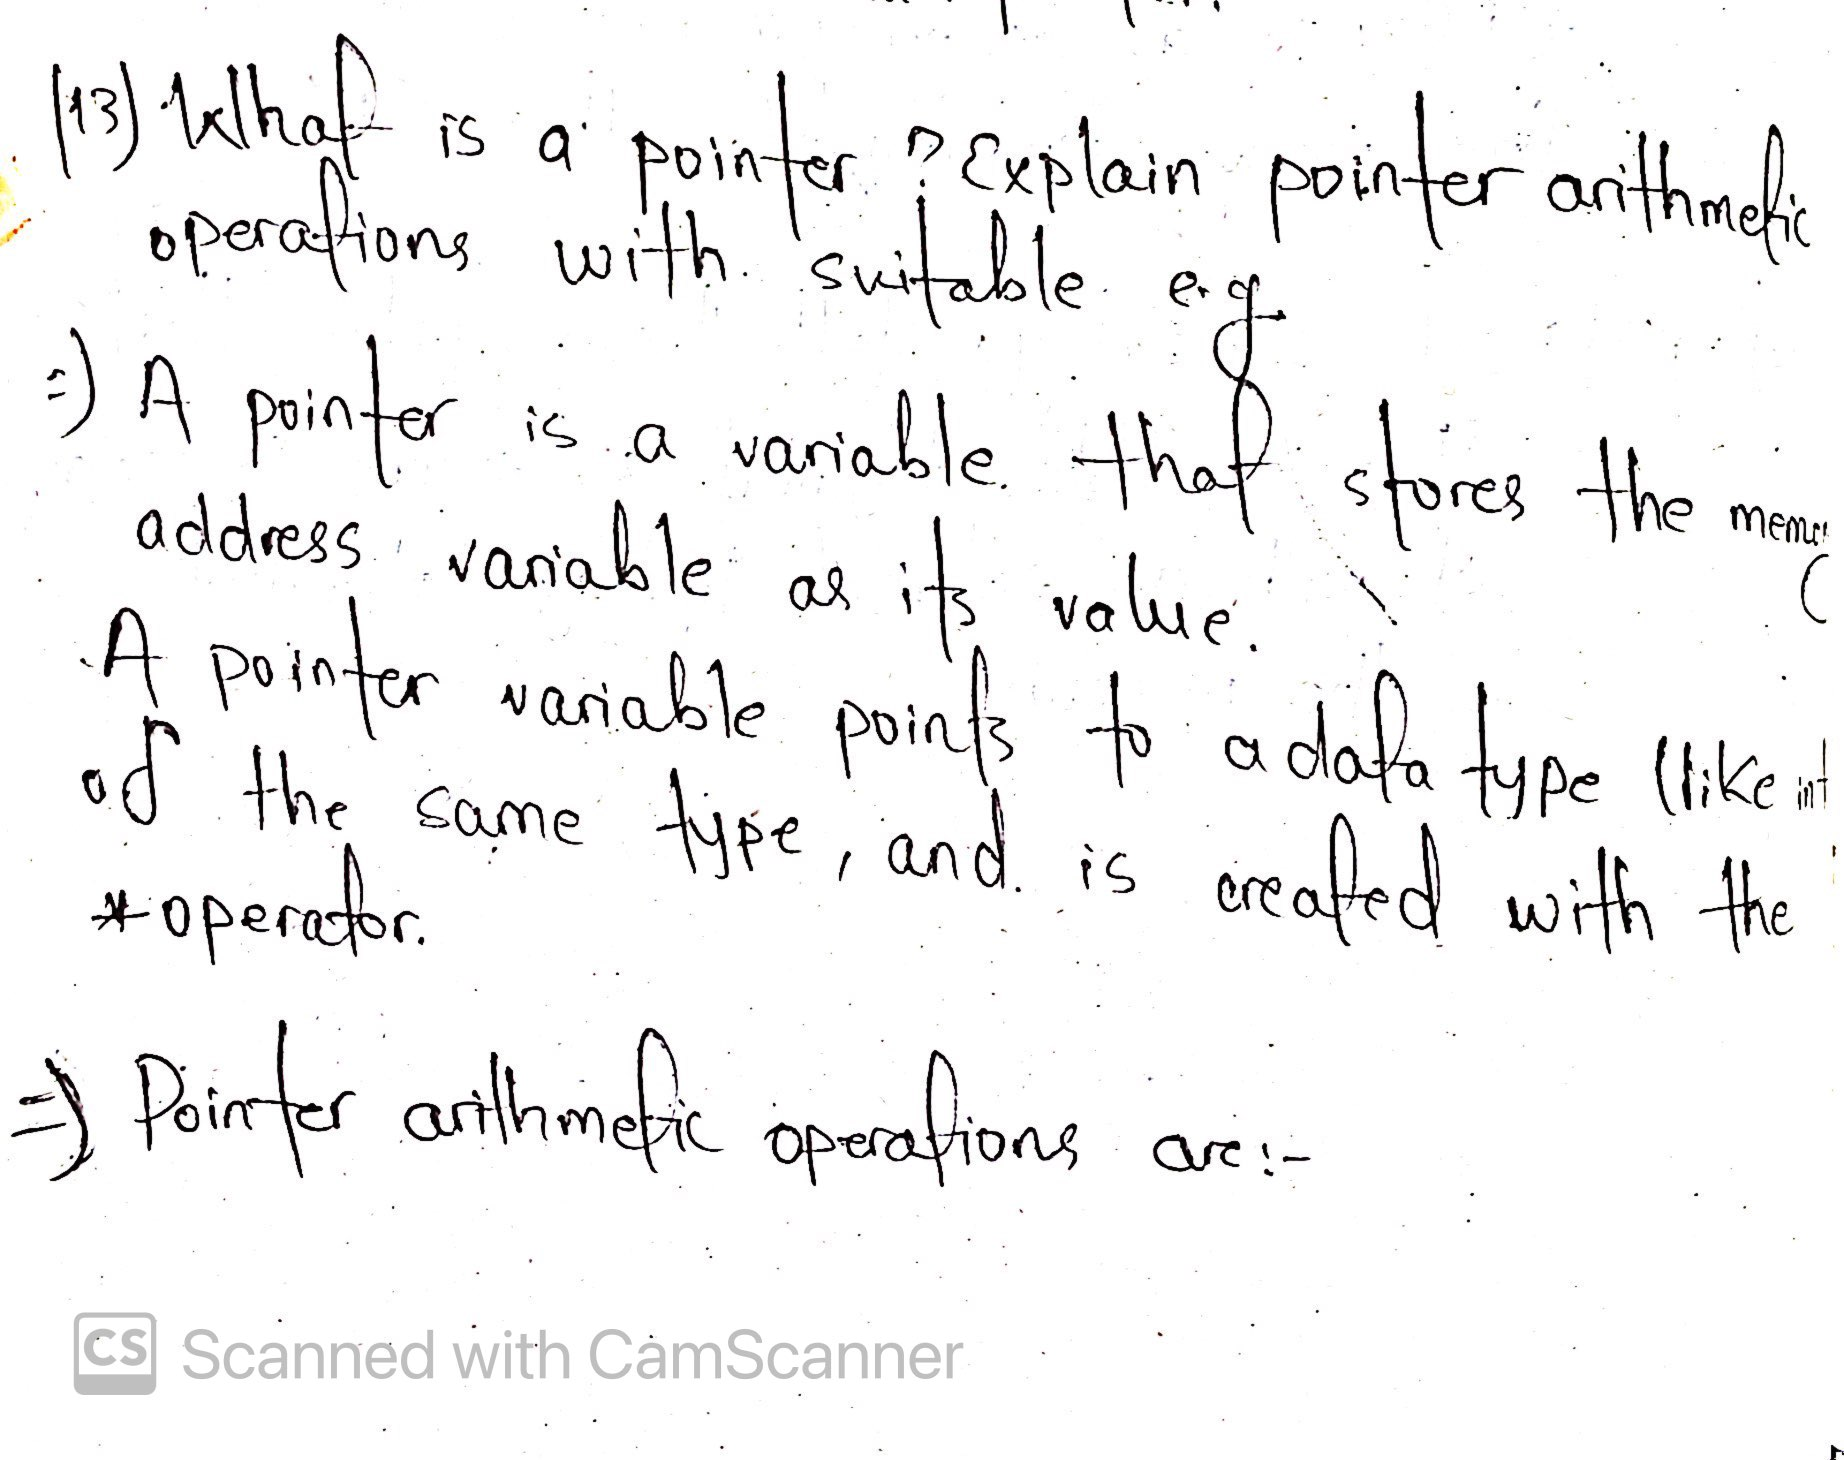 (13) What is a pointer? Explain pointer arithmetic
operations with suitable e.g
=) A pointer is a variable that stores the
address variable as its value.
A pointer variable points to a data type (like int
of the same type, and is created with the
* operator.
=) Pointer arithmetic operations are:-
CS Scanned with CamScanner